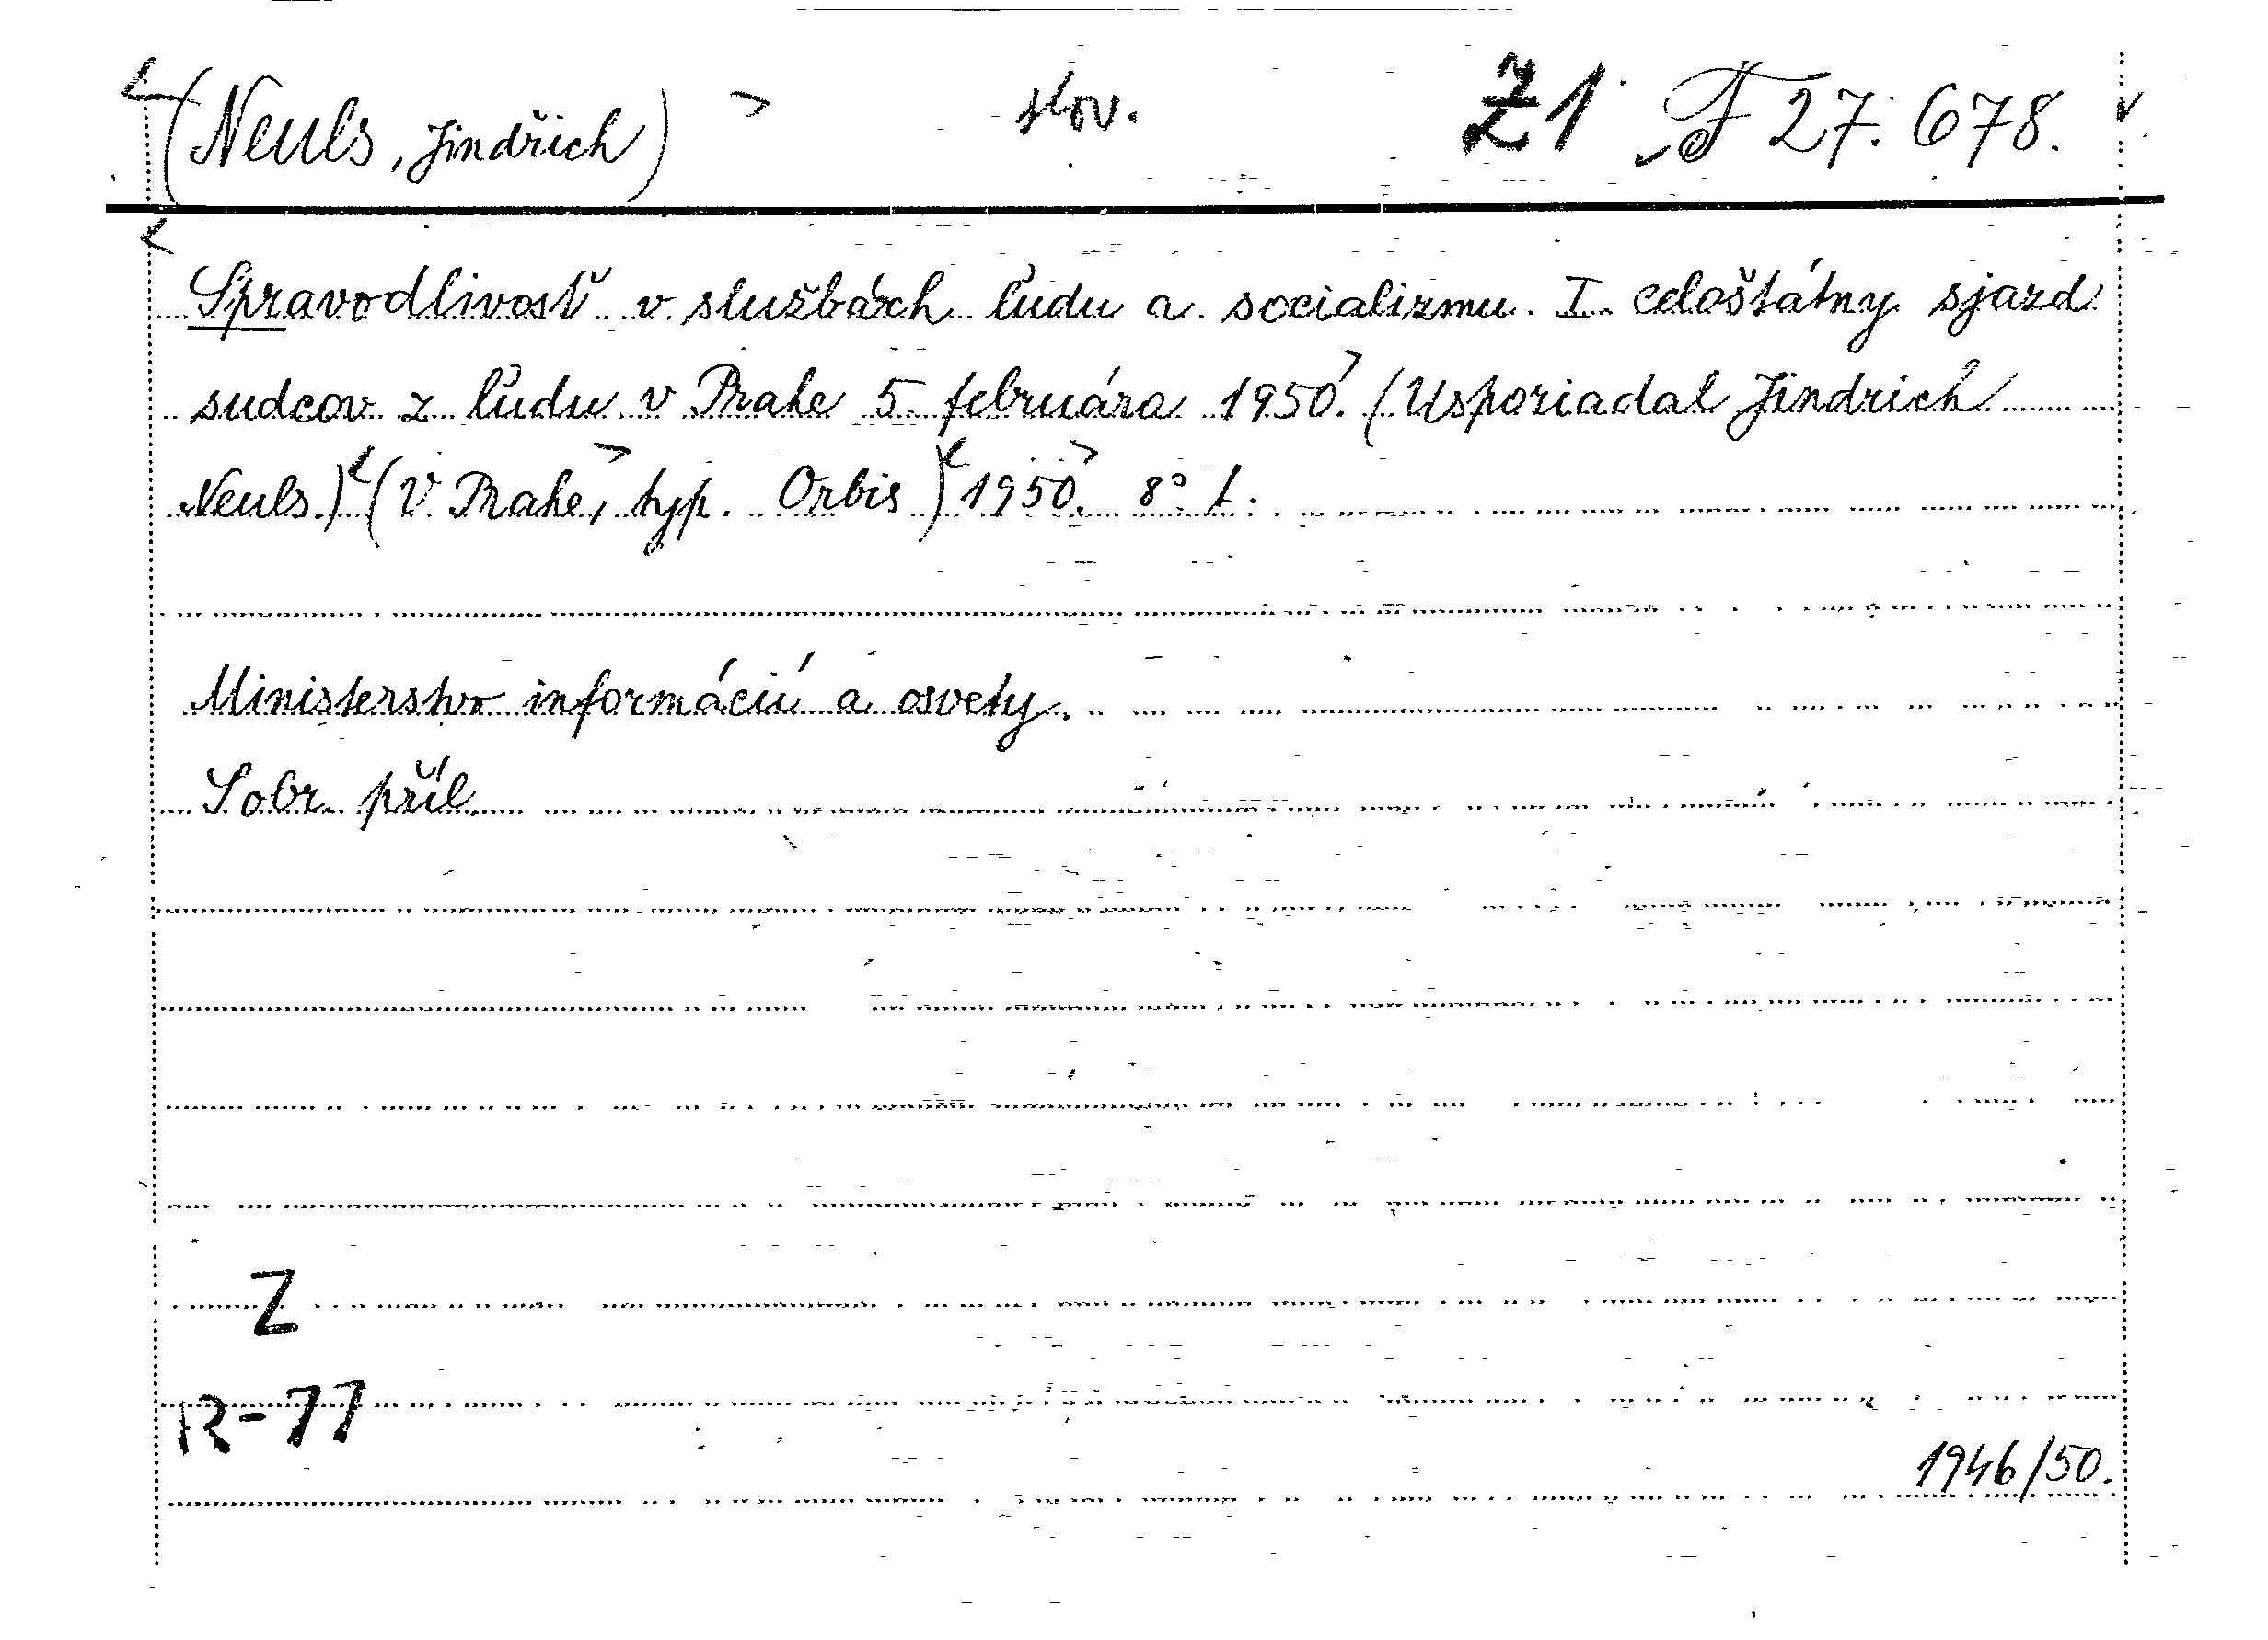 (Neuls, Jindřich) slov. Z1 F 27.678.
Spravodlivosť v službách ľudu a socializmu. I. celoštátny sjazd
sudcov z ľudu v Prahe 5. februára 1950. (Usporiadal Jindřich
Neuls.) (V Prahe, typ. Orbis) 1950. 8° l.
Ministerstvo informácií a osvety.
S obr. příl.
Z
R-77
1946/50.